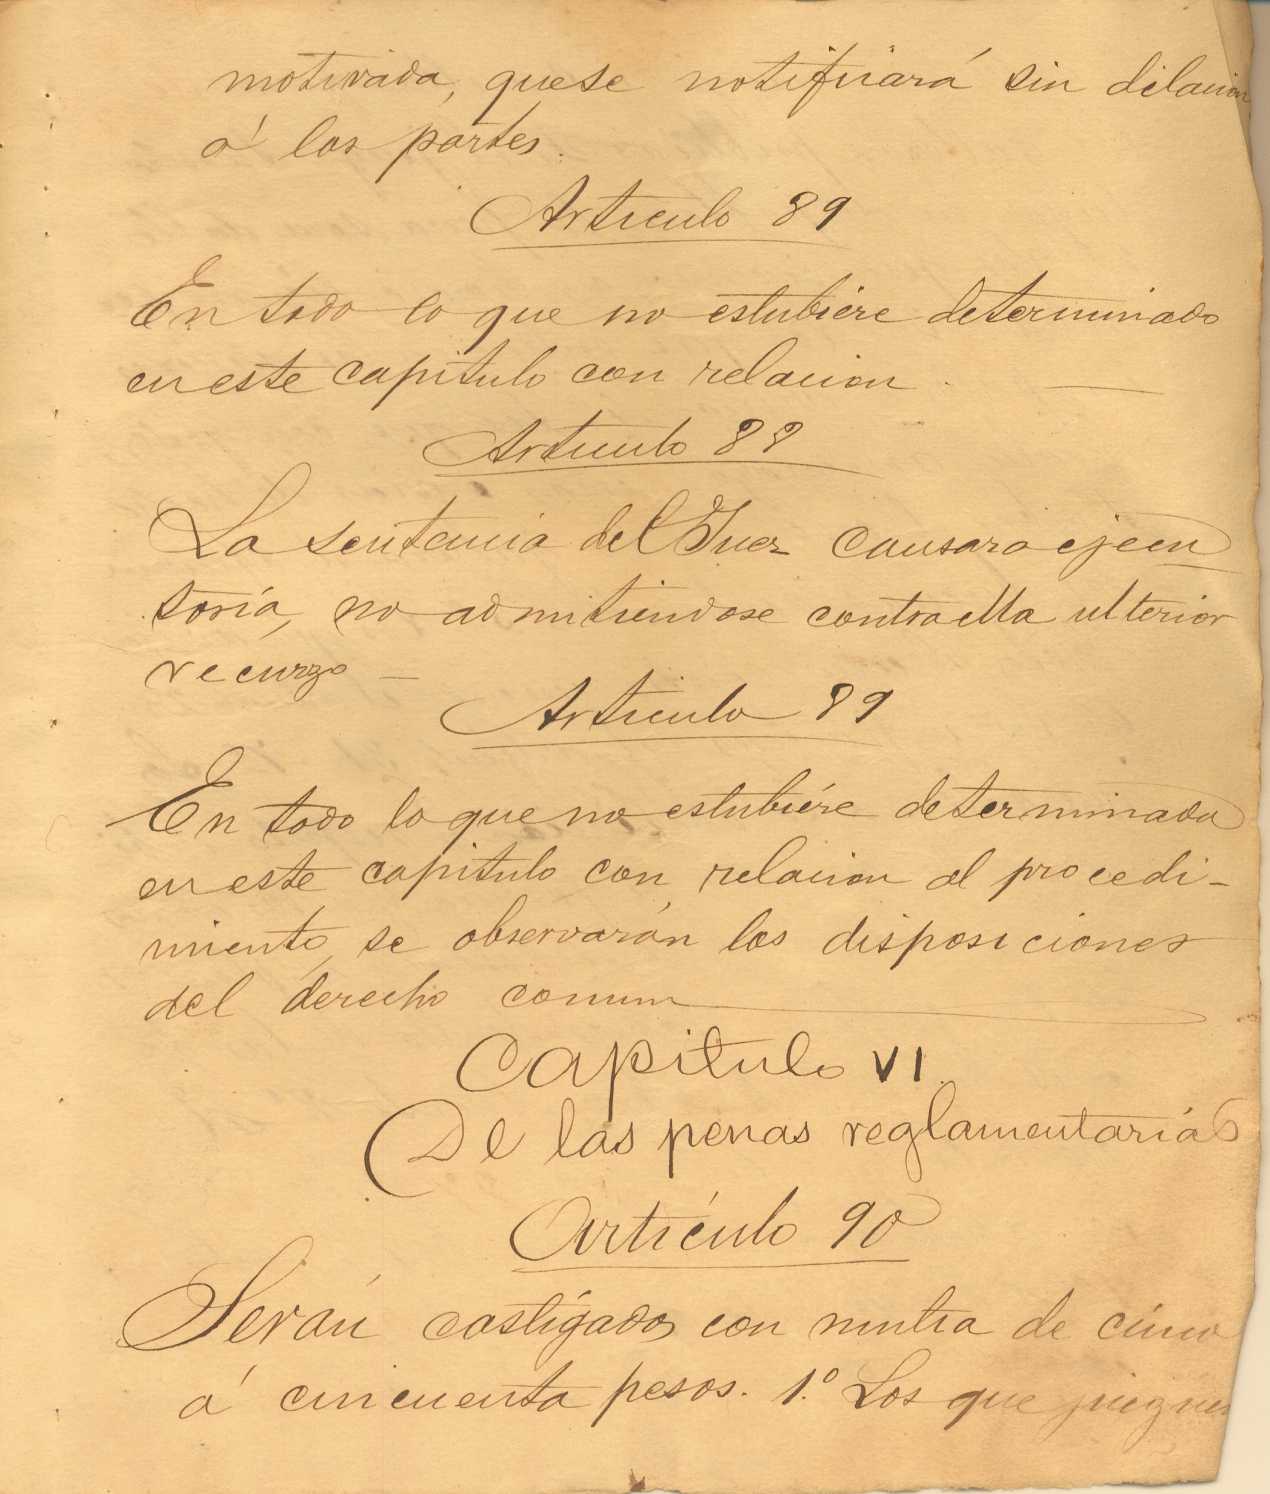 motivada, que se notificará sin dilacion
á las partes.
Articulo 89
En todo lo que no estubiére determinado
en este capitulo con relacion.
Articulo 88
La sentencia del Juez causara ejecu
toria, no admitiendose contra ella ulterior
recurzo —
Articulo 89
En todo lo que no estubiére determinado
en este capitulo con relacion al procedi-
miento, se observarán las disposiciones
del derecho comun
Capitulo VI.
De las penas reglamentarias
Artículo 90
Serán castigados con multa de cinco
á cincuenta pesos. 1.º Los que jueguen